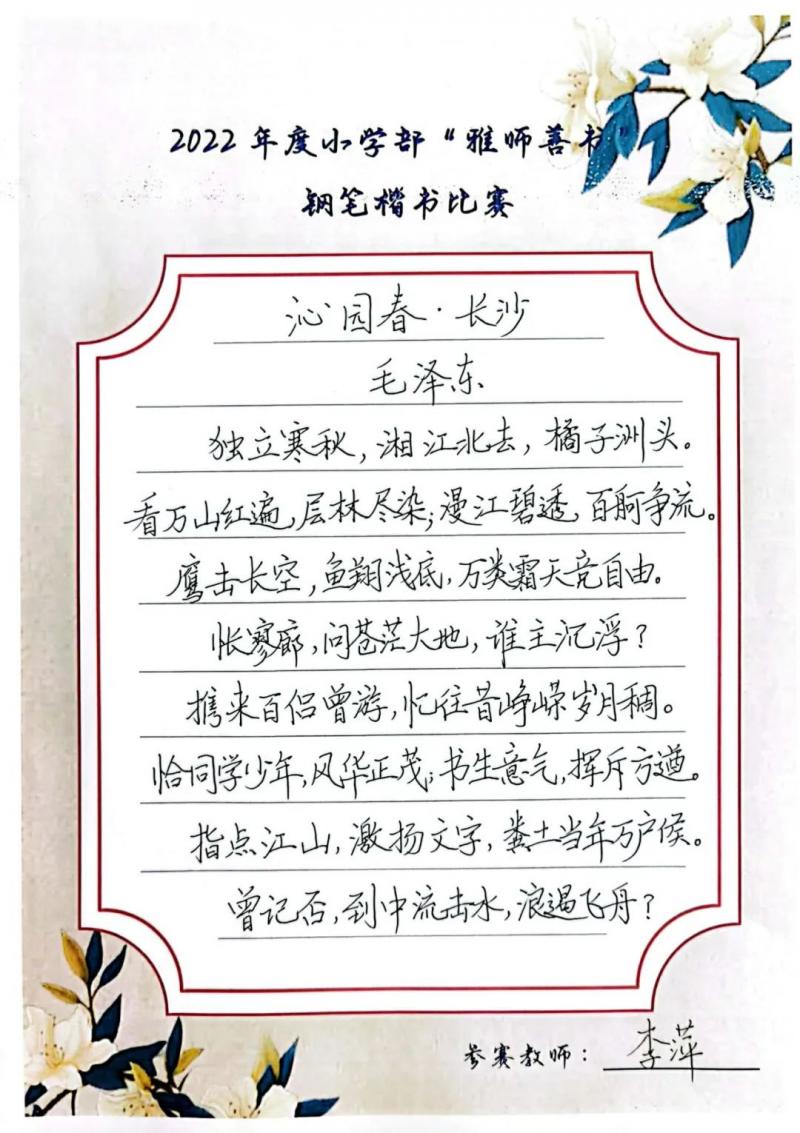 2022年度小学部“雅师善书”
钢笔楷书比赛
沁园春·长沙
毛泽东
独立寒秋,湘江北去,橘子洲头。
看万山红遍,层林尽染;漫江碧透,百舸争流。
鹰击长空,鱼翔浅底,万类霜天竞自由。
怅寥廓,问苍茫大地,谁主沉浮?
携来百侣曾游,忆往昔峥嵘岁月稠。
恰同学少年,风华正茂;书生意气,挥斥方遒。
指点江山,激扬文字,粪土当年万户侯。
曾记否,到中流击水,浪遏飞舟?
参赛教师:李萍